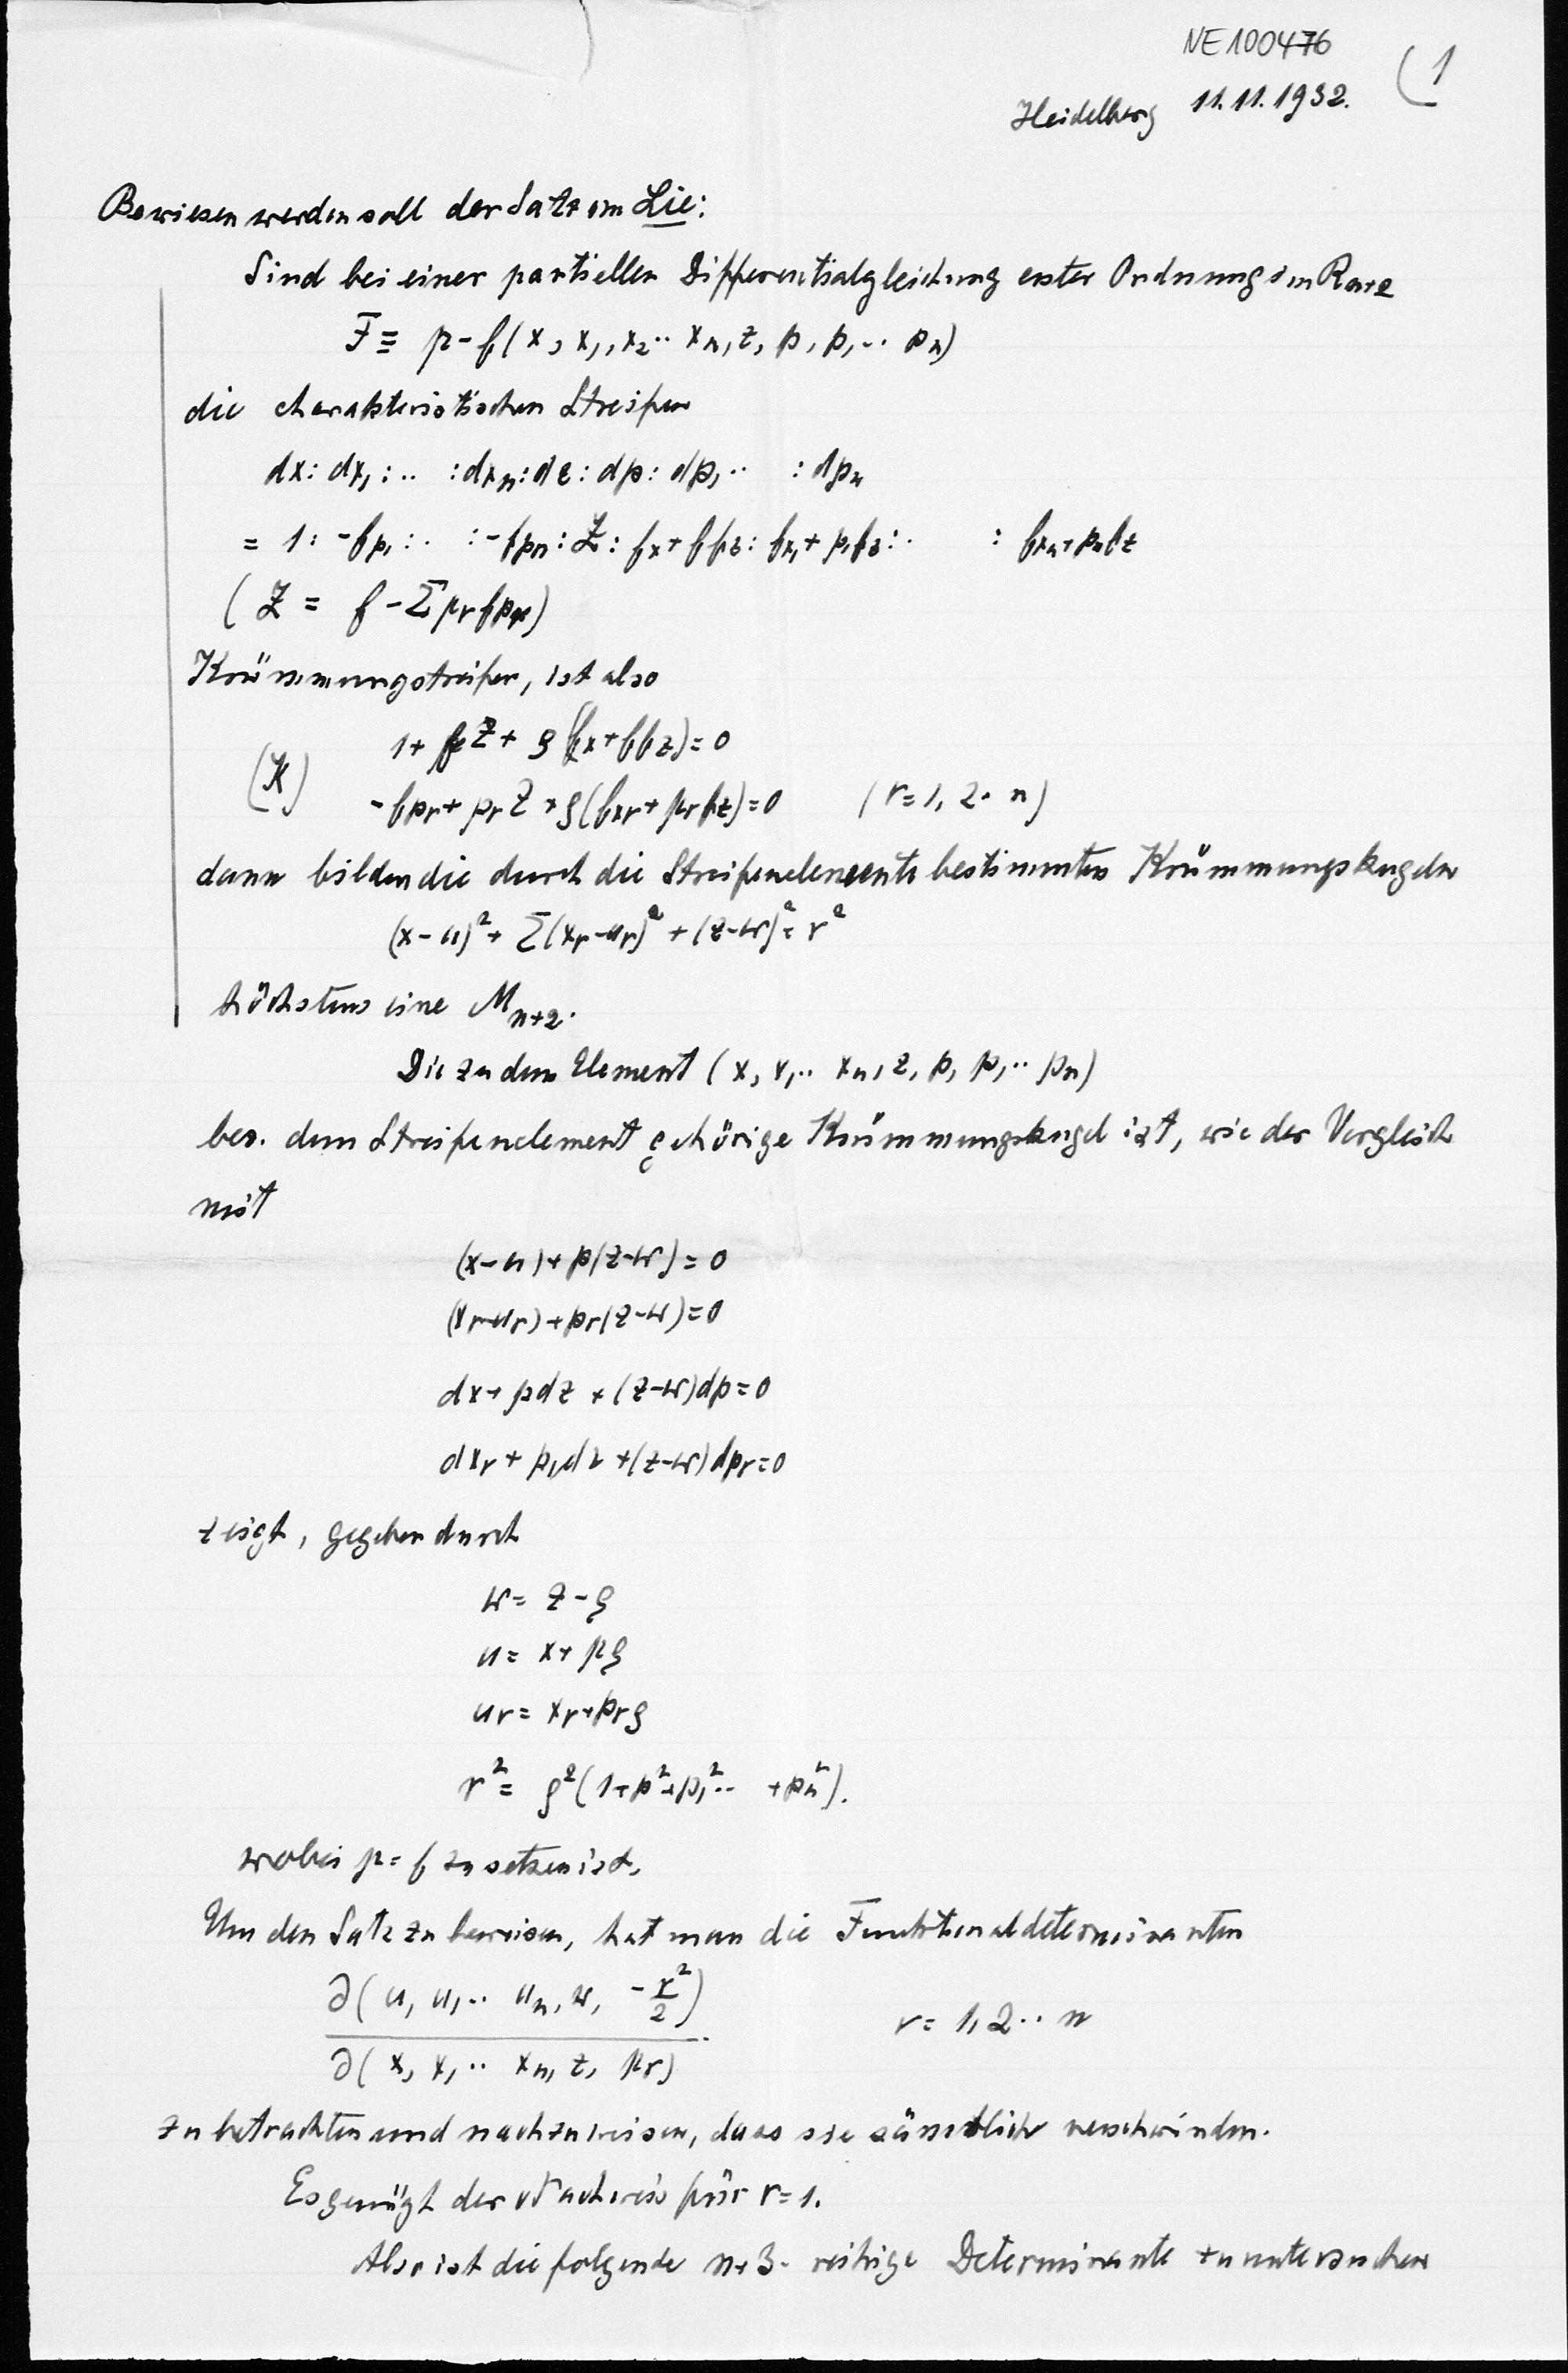 NE100476
(1
Heidelberg 11.11.1932.
Bewiesen werden soll der Satz von Lie:
Sind bei einer partiellen Differentialgleichung erster Ordnung im R_{n+2}
F ≡ p - f(x, x₁, x₂.. xₙ, z, p, p₁.. pₙ)
die charakteristischen Streifen
dx : dx₁ : .. : dxₙ : dz : dp : dp₁ .. : dpₙ
= 1 : -fp₁ : . : -fpₙ : Z : fx + ffz : fx₁ + p₁fz : . : fxₙ + pₙfz
(Z = f - Σ pr fpr)
Krümmungstreifen, ist also
1 + fZ + ρ(fx + ffz) = 0
(K) -fpr + prZ + ρ(fxr + prfz) = 0 (r = 1, 2. n)
dann bilden die durch die Streifenelemente bestimmten Krümmungskugeln
(x-u)² + Σ(xr-ur)² + (z-w)² = r²
höchstens eine Mₙ₊₂.
Die zu dem Element (x, x₁.. xₙ, z, p, p₁.. pₙ)
bez. dem Streifenelement gehörige Krümmungskugel ist, wie der Vergleich
mit
(x-u) + p(z-w) = 0
(xr-ur) + pr(z-w) = 0
dx + pdz + (z-w)dp = 0
dxr + prdz + (z-w)dpr = 0
zeigt, gegeben durch
w = z - ρ
u = x + pρ
ur = xr + prρ
r² = ρ²(1 + p² + p₁² .. + pₙ²).
wobei p = f zu setzen ist.
Um den Satz zu beweisen, hat man die Funktionaldeterminanten
∂(u, u₁.. uₙ, w, -r²/2)
∂(x, x₁.. xₙ, z, pr) r = 1, 2.. n
zu betrachten und nachzuweisen, dass sie sämtlich verschwinden.
Es genügt der Nachweis für r = 1.
Also ist die folgende n+3- reihige Determinante zu untersuchen